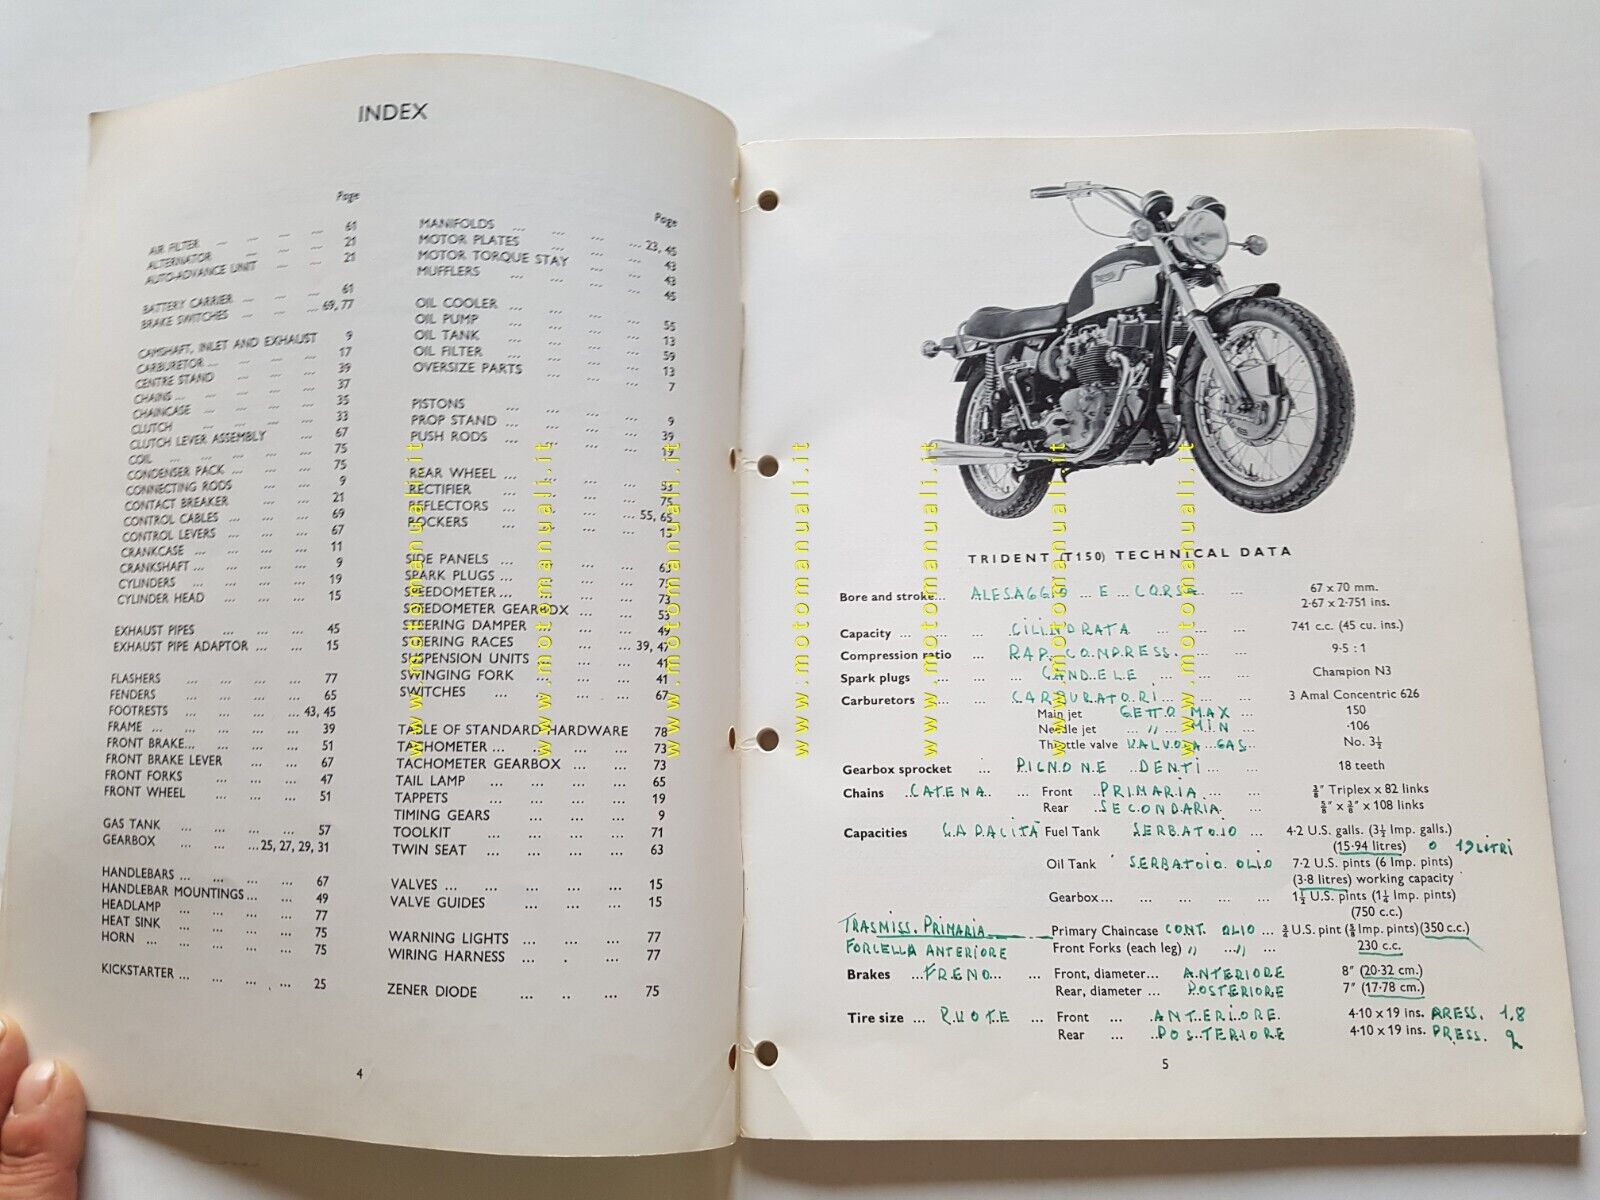 INDEX
Page
AIR FILTER ... ... ... ... 61
ALTERNATOR ... ... ... 21
AUTO-ADVANCE UNIT ... ... 21
BATTERY CARRIER ... ... ... 61
BRAKE SWITCHES ... ... ... 69, 77
CAMSHAFT, INLET AND EXHAUST 9
CARBURETOR ... ... ... ... 17
CENTRE STAND ... ... ... 39
CHAINS ... ... ... ... 37
CHAINCASE ... ... ... ... 35
CLUTCH ... ... ... ... 33
CLUTCH LEVER ASSEMBLY ... 67
COIL ... ... ... ... 75
CONDENSER PACK ... ... ... 75
CONNECTING RODS ... ... 9
CONTACT BREAKER ... ... 21
CONTROL CABLES ... ... ... 69
CONTROL LEVERS ... ... ... 67
CRANKCASE ... ... ... ... 11
CRANKSHAFT ... ... ... ... 9
CYLINDERS ... ... ... ... 19
CYLINDER HEAD ... ... ... 15
EXHAUST PIPES ... ... ... 45
EXHAUST PIPE ADAPTOR ... ... 15
FLASHERS ... ... ... ... 77
FENDERS ... ... ... ... 65
FOOTRESTS ... ... ... ... 43, 45
FRAME ... ... ... ... 39
FRONT BRAKE... ... ... ... 51
FRONT BRAKE LEVER ... ... 67
FRONT FORKS ... ... ... 47
FRONT WHEEL ... ... ... 51
GAS TANK ... ... ... ... 57
GEARBOX ... ... ...25, 27, 29, 31
HANDLEBARS ... ... ... ... 67
HANDLEBAR MOUNTINGS... ... 49
HEADLAMP ... ... ... ... 77
HEAT SINK ... ... ... ... 75
HORN ... ... ... ... 75
KICKSTARTER ... ... ... ... 25
Page
MANIFOLDS ... ... ... ... 23, 45
MOTOR PLATES ... ... ... 43
MOTOR TORQUE STAY ... ... 43
MUFFLERS ... ... ... ... 45
OIL COOLER ... ... ... ... 55
OIL PUMP ... ... ... ... 13
OIL TANK ... ... ... ... 59
OIL FILTER ... ... ... ... 13
OVERSIZE PARTS ... ... ... 7
PISTONS ... ... ... ... 9
PROP STAND ... ... ... ... 39
PUSH RODS ... ... ... ... 19
REAR WHEEL ... ... ... ... 53
RECTIFIER ... ... ... ... 75
REFLECTORS ... ... ... ... 55, 65
ROCKERS ... ... ... ... 15
SIDE PANELS ... ... ... ... 63
SPARK PLUGS ... ... ... ... 75
SPEEDOMETER ... ... ... ... 73
SPEEDOMETER GEARBOX ... ... 53
STEERING DAMPER ... ... ... 49
STEERING RACES ... ... ... 39, 47
SUSPENSION UNITS ... ... ... 41
SWINGING FORK ... ... ... 41
SWITCHES ... ... ... ... 67
TABLE OF STANDARD HARDWARE 78
TACHOMETER ... ... ... ... 73
TACHOMETER GEARBOX ... ... 73
TAIL LAMP ... ... ... ... 65
TAPPETS ... ... ... ... 19
TIMING GEARS ... ... ... 9
TOOLKIT ... ... ... ... 71
TWIN SEAT ... ... ... ... 63
VALVES ... ... ... ... 15
VALVE GUIDES ... ... ... 15
WARNING LIGHTS ... ... ... 77
WIRING HARNESS ... ... 77
ZENER DIODE ... ... ... 75
4
TRIDENT (T150) TECHNICAL DATA
Bore and stroke... ALESAGGIO ... E ... CORSA ... 67 x 70 mm.
2·67 x 2·751 ins.
Capacity ... ... CILINDRATA ... ... ... 741 c.c. (45 cu. ins.)
Compression ratio ... RAP. COMPRESS. ... ... 9·5 : 1
Spark plugs ... ... CANDELE ... ... ... Champion N3
Carburetors ... ... CARBURATORI ... ... ... 3 Amal Concentric 626
Main jet GETTO MAX ... 150
Needle jet ... " ... MIN ... ·106
Throttle valve VALVOLA GAS ... No. 3½
Gearbox sprocket ... PIGNONE DENTI ... ... 18 teeth
Chains ... CATENA ... ... Front PRIMARIA ... ... ⅜" Triplex x 82 links
Rear ... SECONDARIA ... ⅝" x ⅜" x 108 links
Capacities CAPACITÀ Fuel Tank SERBATOIO ... 4·2 U.S. galls. (3½ Imp. galls.)
(15·94 litres) o 19 LITRI
Oil Tank SERBATOIO OLIO 7·2 U.S. pints (6 Imp. pints)
(3·8 litres) working capacity
Gearbox ... ... ... ... 1½ U.S. pints (1¼ Imp. pints)
(750 c.c.)
TRASMISS. PRIMARIA Primary Chaincase CONT. OLIO ... ¾ U.S. pint (⅝ Imp. pints) (350 c.c.)
FORCELLA ANTERIORE Front Forks (each leg) " ... " ... 230 c.c.
Brakes ... FRENO ... ... Front, diameter... ANTERIORE 8" (20·32 cm.)
Rear, diameter ... POSTERIORE 7" (17·78 cm.)
Tire size ... RUOTE ... Front ... ANTERIORE 4·10 x 19 ins. PRESS. 1,8
Rear ... POSTERIORE 4·10 x 19 ins. PRESS. 2
5
www.motomanuali.it
www.motomanuali.it
www.motomanuali.it
www.motomanuali.it
www.motomanuali.it
www.motomanuali.it
www.motomanuali.it